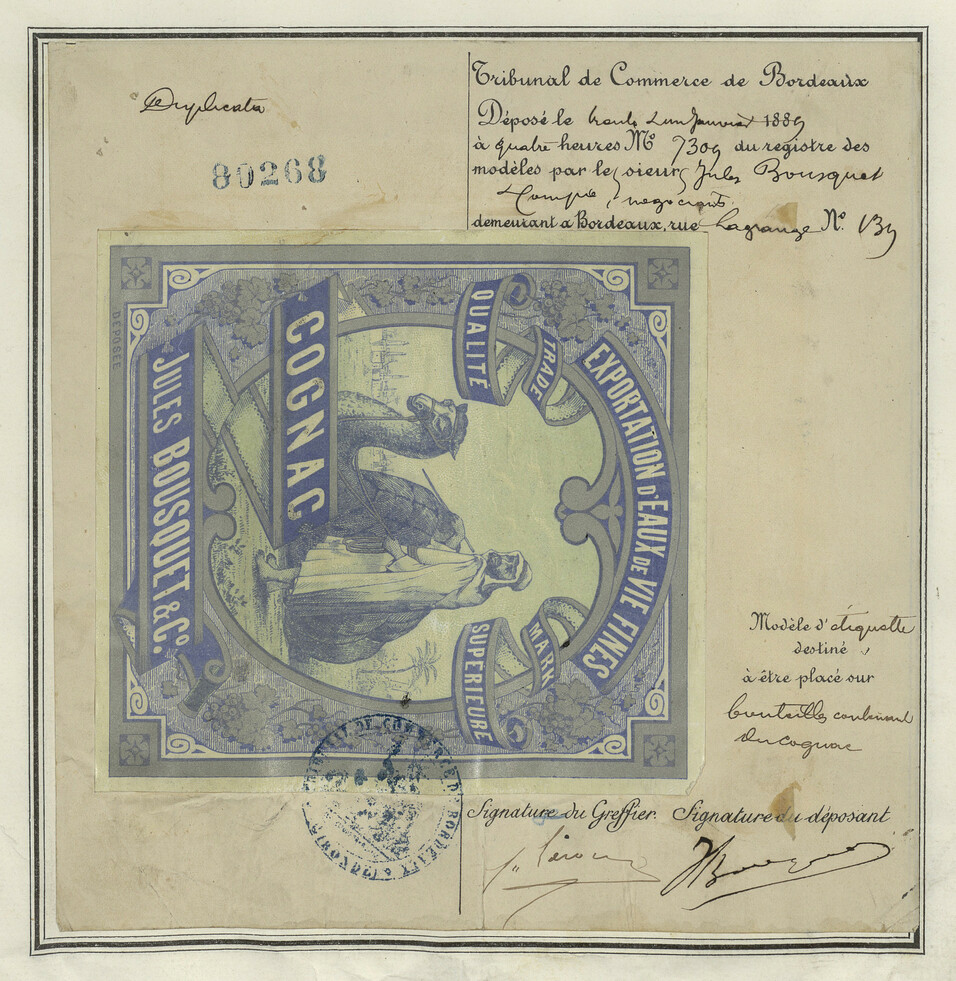 Duplicata
80268
Tribunal de Commerce de Bordeaux
Déposé le trente un Janvier 1889
à quatre heures No 7309 du registre des
modèles par le sieur Jules Bousquet
Compie, négociants
demeurant a Bordeaux, rue Lagrange No. 139
EXPORTATION D'EAUX DE VIE FINES
TRADE MARK
QUALITÉ SUPÉRIEURE
COGNAC
JULES BOUSQUET & Co.
DÉPOSÉE
Modèle d'étiquette
destiné
à être placé sur
bouteilles contenant
du cognac
TRIBUNAL DE COMMERCE DE BORDEAUX (GIRONDE)
Signature du Greffier. Signature du déposant